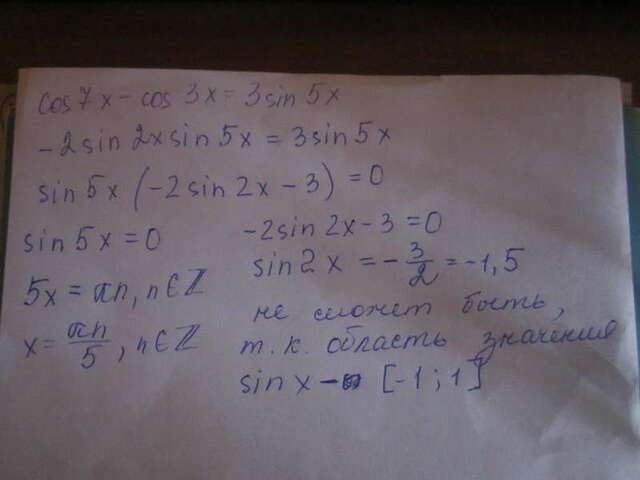 cos 7x - cos 3x = 3 sin 5x
-2 sin 2x sin 5x = 3 sin 5x
sin 5x (-2 sin 2x - 3) = 0
sin 5x = 0
5x = πn, n ∈ ℤ
x = πn/5, n ∈ ℤ
-2 sin 2x - 3 = 0
sin 2x = -3/2 = -1,5
не может быть,
т.к. область значения
sin x - [-1; 1]